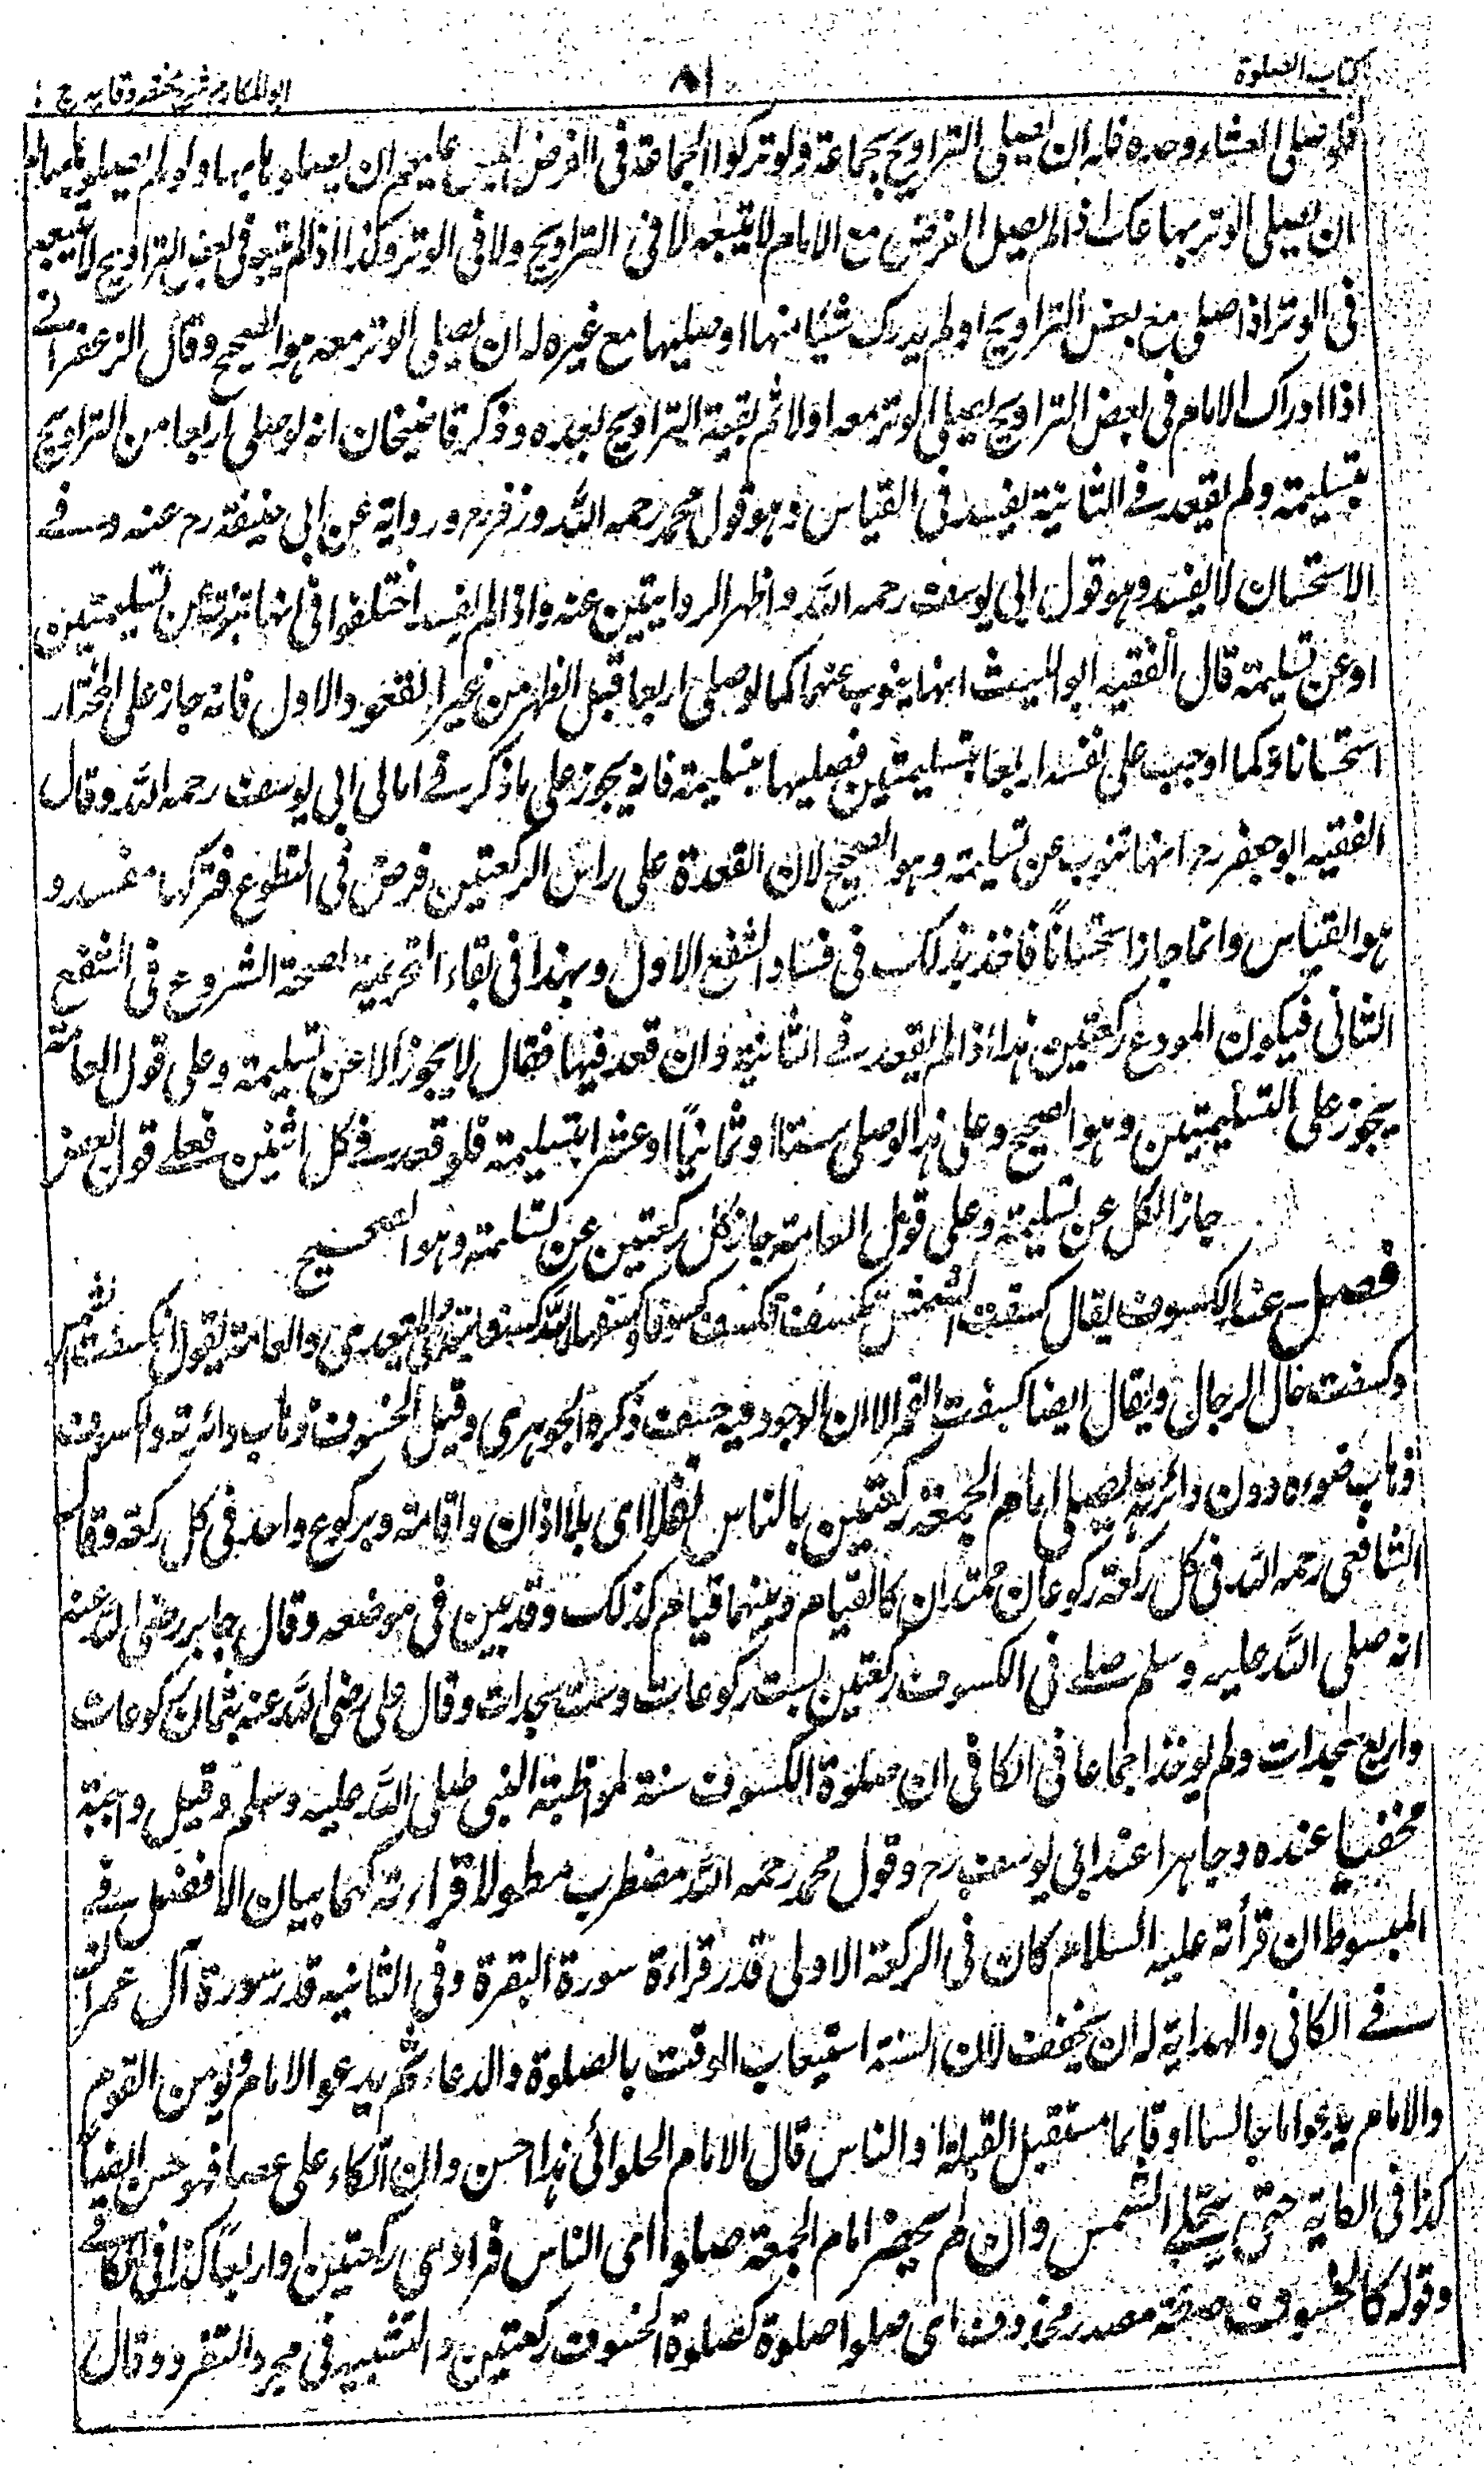 كتاب الصلوة
٨١
ابو المكارم شرح مختصر وقايه ج ١
فلو صلى العشاء وحده فله ان يصلى التراويح بجماعة ولو تركوا الجماعة فى الفرض ليس لهم ان يصلوها بها ولو لم يصلوها بها له
ان يصلى الوتر بها عك اذا لم يصل الفرض مع الامام لا يتبعه لا فى التراويح ولا فى الوتر وكذا اذا لم يتبعه فى بعض التراويح لا يتبعه
فى الوتر اذا صلى مع بعض التراويح او لم يدرك شيئا منها او صليها مع غيره له ان يصلى الوتر معه هو الصحيح وقال الزعفرانى
اذا ادراك الامام فى بعض التراويح يصلى الوتر معه اولا ثم بقية التراويح بعده وذكر قاضيخان انه لو صلى اربعا من التراويح
بتسليمة ولم يقعد فى الثانية يفسد فى القياس وهو قول محمد رحمه الله وزفر رح ورواية عن ابى حنيفة رح عنه وفى
الاستحسان لا يفسد وهو قول ابى يوسف رحمه الله واظهر الروايتين عنه واذا لم يفسد اختلفوا فى انها تنوب عن تسليمتين
او عن تسليمة قال الفقيه ابو الليث انها ينوب عنهما كما لو صلى اربعا قبل الظهر من غير القعود الاول فانه جاز على المختار
استحسانا وكما اوجب على نفسه اربعا بتسليمتين فصليها بتسليمة فانه يجوز على ما ذكر فى امالى ابى يوسف رحمه الله وقال
الفقيه ابو جعفر رح انها تنوب عن تسليمة وهو الصحيح لان القعدة على راس الركعتين فرض فى التطوع فتركها مفسد و
هو القياس وانما جاز استحسانًا فاخذ بذلك فى فساد الشفع الاول وبهذا فى بقاء التحريمة لصحة الشروع فى الشفع
الثانى فيكون المودع ركعتين هذا اذا لم يقعد فى الثانية وان قعد فيها فقال لا يجوز الا عن تسليمة وعلى قول العامة
يجوز على التسليمتين وهو الصحيح وعلى هذا لو صلى ستا او ثمانيًا او عشرا بتسليمة فلو قعد فى كل اثنين فعلى قول البعض
جاز الكل عن تسليمة وعلى قول العامة جاز كل ركعتين عن تسليمة وهو الصحيح
فصل عند الكسوف يقال كسفت الشمس تكسف كسوفا وكسفها الله كسفا يتعدى ولا يتعدى والعامة يقول انكسفت الشمس
وكسفت حال الرجال ويقال ايضا كسفت القمر الا ان الاجود فيه خسف ذكره الجوهرى وقيل الخسوف ذهاب دائرته والكسوف
ذهاب ضوءه دون دائرته يصلى امام الجمعة ركعتين بالناس نفلا اى بلا اذان واقامة وبركوع واحد فى كل ركعة وقال
الشافعى رحمه الله فى كل ركعة ركوعان ممتدان كالقيام وبينهما قيام كذلك وقد بين فى موضعه وقال جابر رضى الله عنه
انه صلى الله عليه وسلم صلى فى الكسوف ركعتين بست ركوعات وست سجدات وقال على رضى الله عنه بثمان ركوعات
واربع سجدات ولم يوخذ اجماعا فى الكافى ان صلوة الكسوف سنة لمواظبة النبى صلى الله عليه وسلم وقيل واجبة
مخفيا عنده وجاهرا عند ابى يوسف رح وقول محمد رحمه الله مضطرب مطولا قراءته كما بيان الافضل فى
المبسوط ان قرأته عليه السلام كان فى الركعة الاولى قدر قراءة سورة البقرة وفى الثانية قدر سورة آل عمران
فى الكافى والهداية له ان يخفف لان السنة استيعاب الوقت بالصلوة والدعاء ثم يدعو الامام ويومن القوم
والامام يدعو اما جالسا او قايما مستقبل القبلة او الناس قال الامام الحلوائى هذا احسن وان اتكاء على عصا فهو حسن ايضًا
كذا فى الكفاية حتى ينجلى الشمس وان لم يحضر امام الجمعة صلوا اى الناس فرادى ركعتين او اربعًا كذا فى الكافى
وقوله كالخسوف صفة مصدر محذوف اى صلوا صلوة كصلوة الخسوف ركعتين والتشبيه فى مجرد التفرد وقال